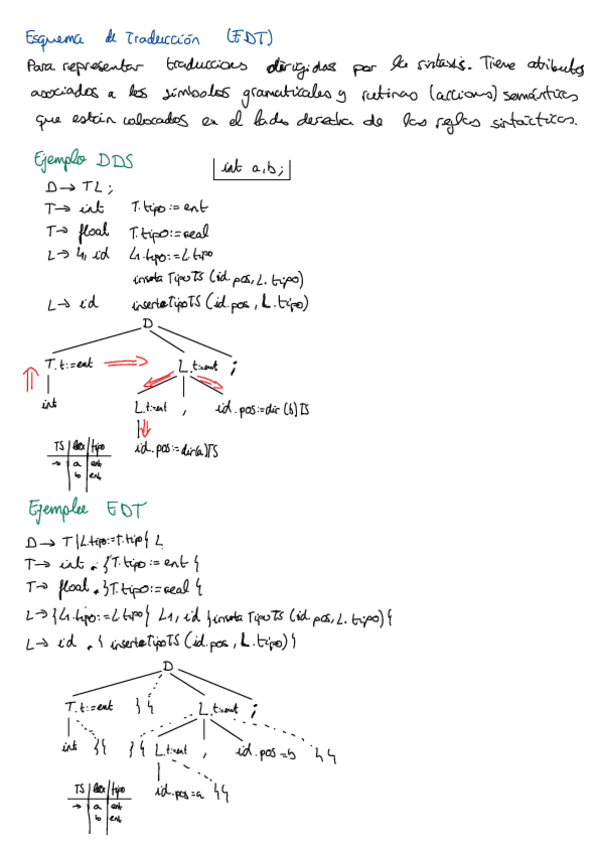 Esquema de Traducción (EDT)
Para representar traduccions dirigidas por la sintaxis. Tiene atributos
asociados a los símbolos gramaticales y rutinas (accions) semánticas
que están colocados en el lado derecha de las reglas sintácticas.
Ejemplo DDS
int a,b;
D → T L ;
T → int T.tipo := ent
T → float T.tipo := real
L → L1, id L1.tipo := L.tipo
insertaTipoTS (id.pos, L.tipo)
L → id insertaTipoTS (id.pos, L.tipo)
D
T.t:=ent ⇒ L.t:=ent ;
int L.t:=ent , id.pos:=dir(b)TS
id.pos:=dir(a)TS
TS lex tipo
→ a ent
b ent
Ejemplee EDT
D → T {L.tipo:=T.tipo{ L
T → int . {T.tipo := ent {
T → float . }T.tipo := real {
L → {L1.tipo:=L.tipo} L1, id {insertaTipoTS (id.pos, L.tipo){
L → id . { insertaTipoTS (id.pos, L.tipo)}
D
T.t:=ent }{ L.t:=ent ;
int }{ }{ L.t:=ent , id.pos=b {{
id.pos=a {{
TS lex tipo
→ a ent
b ent